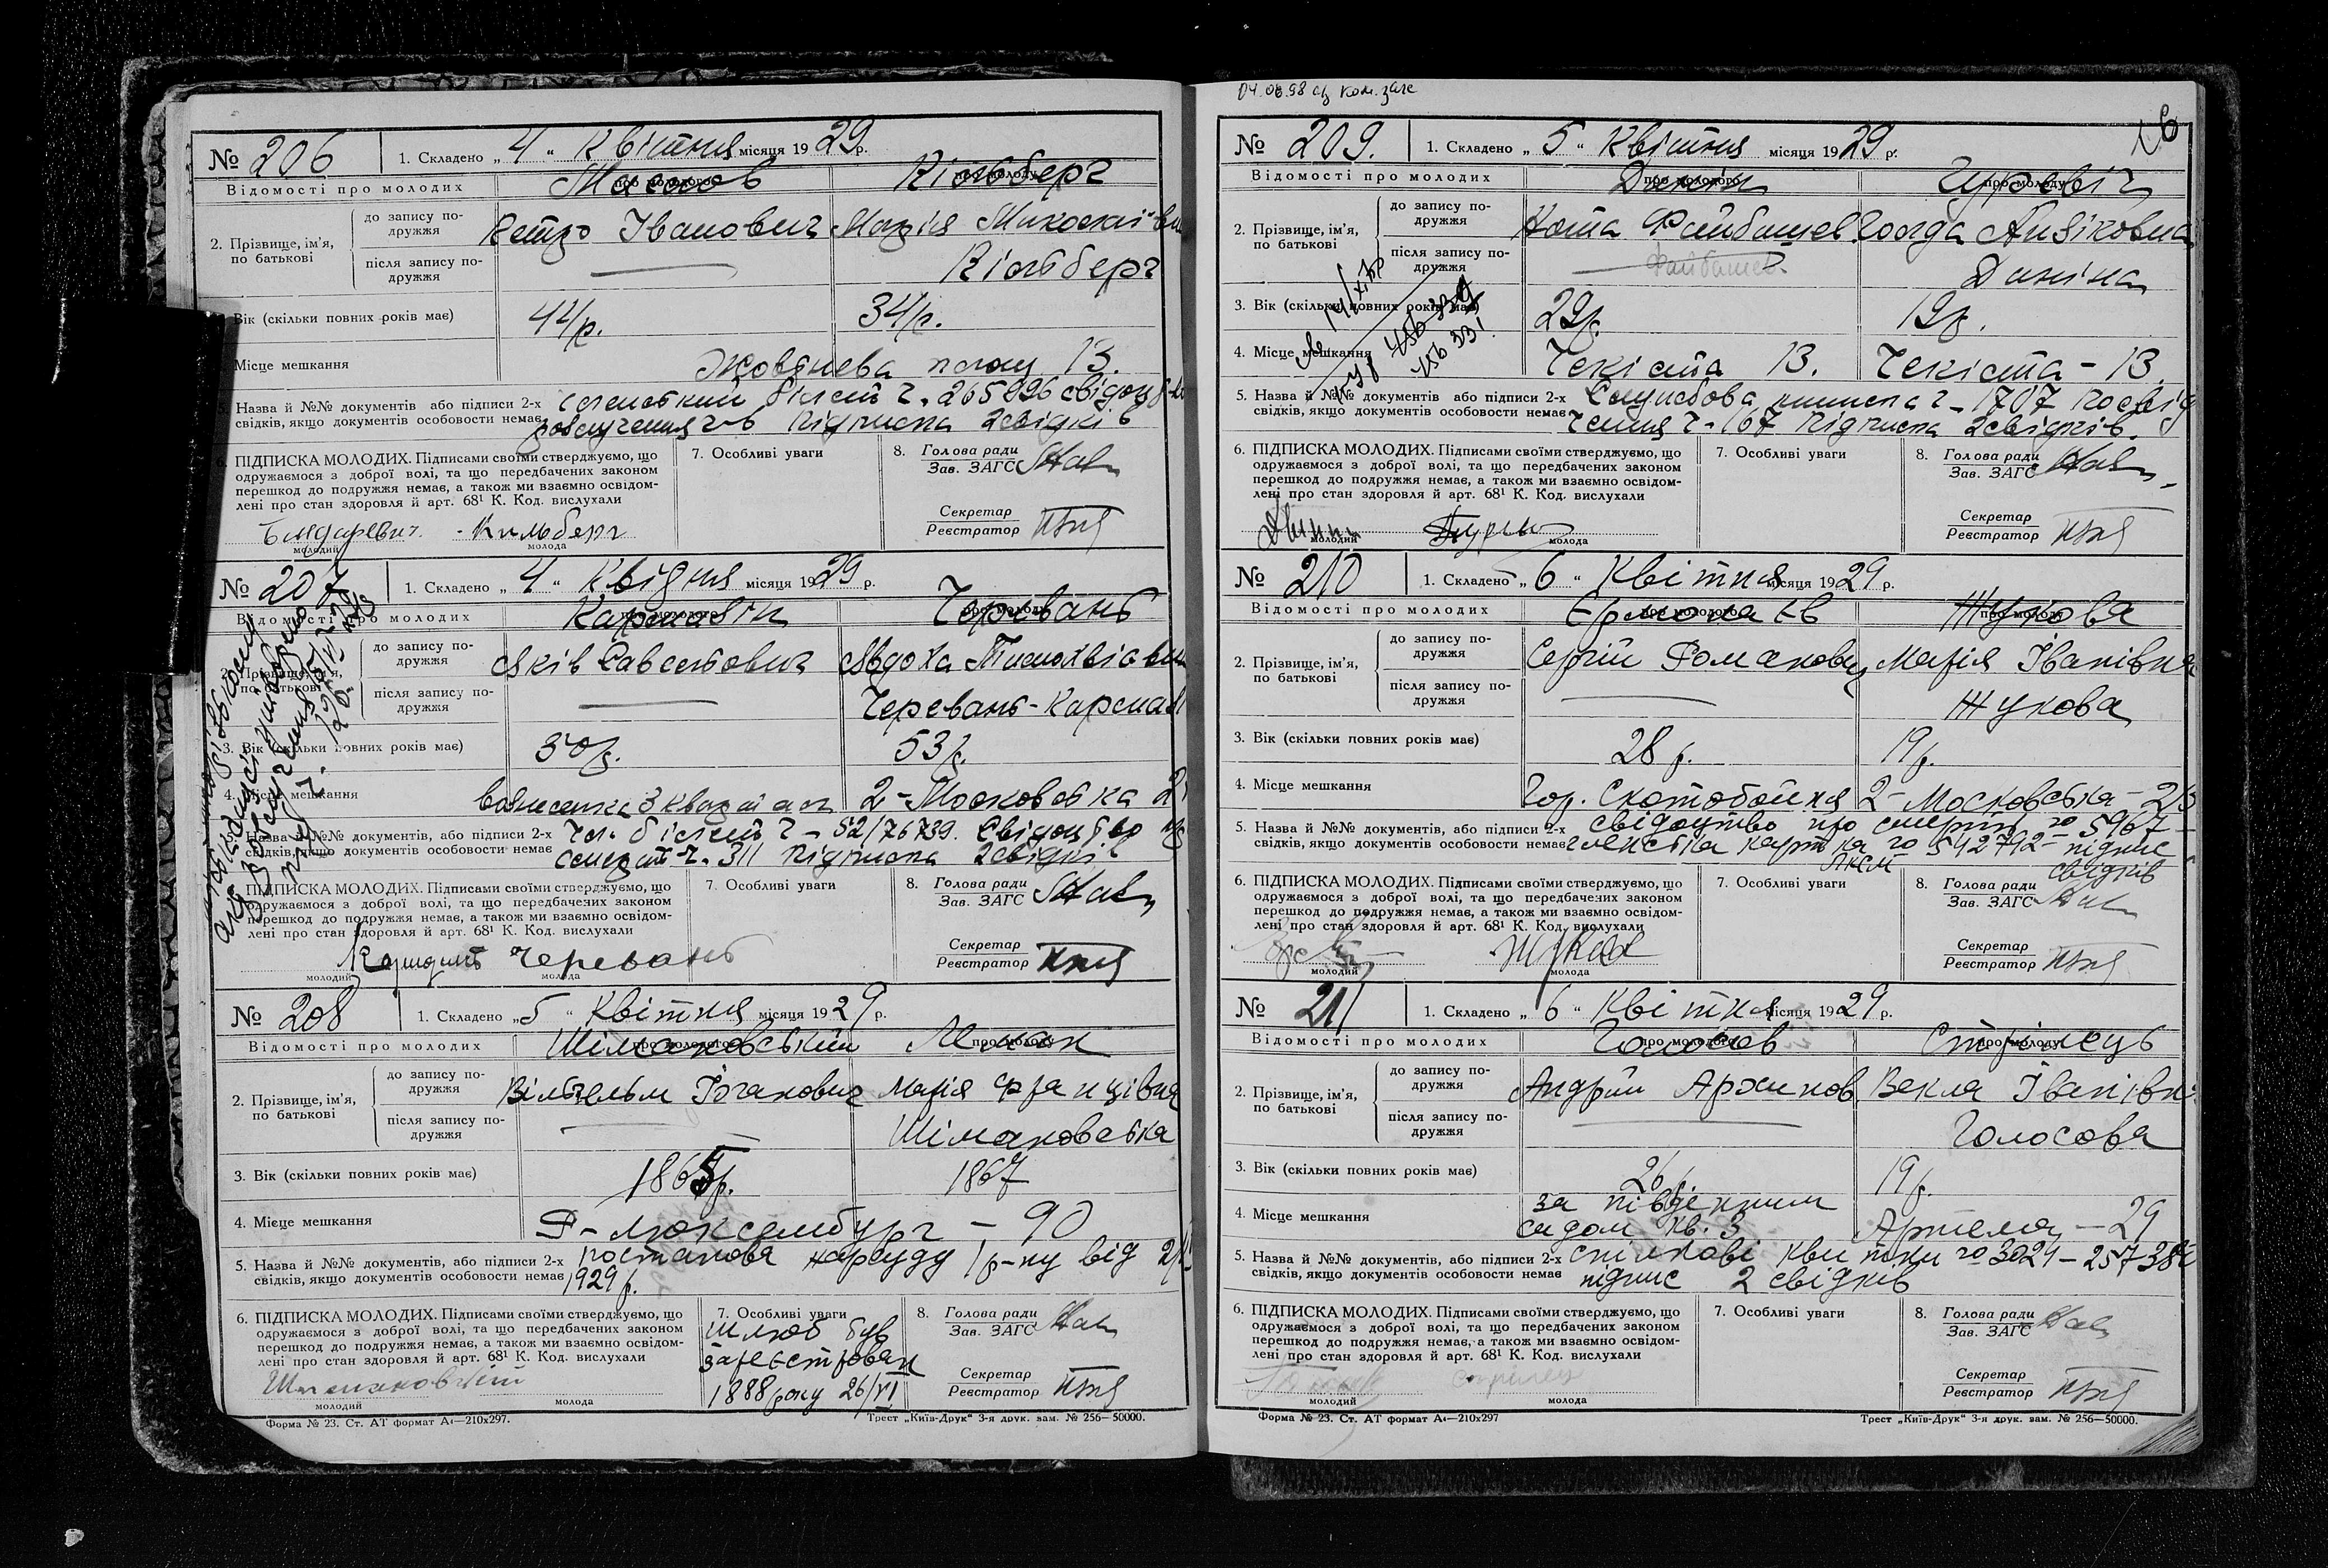 № 206 1. Складено „ 4 “ Квітня місяця 1929 р.
Відомості про молодих про молодого про молоду Кільберг
2. Прізвище, ім’я, по батькові
до запису подружжя Петро Іванович Марія Миколаївна
після запису подружжя — Кільберг
3. Вік (скільки повних років має) 44 р. 34 р.
4. Місце мешкання Жовтнева площ 13.
5. Назва й №№ документів або підписи 2-х членський білєт ч. 265896 свідоцтво
свідків, якщо документів особовости немає розлучення ч-6 Підписка 2 свідків
6. ПІДПИСКА МОЛОДИХ. Підписами своїми стверджуємо, що
одружаємося з доброї волі, та що передбачених законом
перешкод до подружжя немає, а також ми взаємно освідом-
лені про стан здоровля й арт. 68¹ К. Код. вислухали
Кильберг
молодий молода
7. Особливі уваги
8. Голова ради
Зав. ЗАГС
Секретар
Реєстратор
№ 207 1. Складено „ 4 “ Квідня місяця 1929 р.
Відомості про молодих про молодого Черевань
2. Прізвище, ім’я, по батькові
до запису подружжя Яків Савелович Явдоха Тимохвіївна
після запису подружжя — Черевань-
3. Вік (скільки повних років має) 30 р. 53 р.
4. Місце мешкання Вознесенка 3 квартал 2-Московська 2
5. Назва й №№ документів, або підписи 2-х Чл. білєт ч - 52/76739. Свідоцтво про
свідків, якщо документів особовости немає смерть ч. 311 Підписка 2 свідків
6. ПІДПИСКА МОЛОДИХ. Підписами своїми стверджуємо, що
одружаємося з доброї волі, та що передбачених законом
перешкод до подружжя немає, а також ми взаємно освідом-
лені про стан здоровля й арт. 68¹ К. Код. вислухали
Черевань
молодий молода
7. Особливі уваги
8. Голова ради
Зав. ЗАГС
Секретар
Реєстратор
№ 208 1. Складено „ 5 “ Квітня місяця 1929 р.
Відомості про молодих про молодого Шімановський про молоду
2. Прізвище, ім’я, по батькові
до запису подружжя Вільгельм Іоганович Марія Францівна
після запису подружжя — Шімановська
3. Вік (скільки повних років має) 1865 р. 1867
4. Місце мешкання Р-Люксембург - 90
5. Назва й №№ документів, або підписи 2-х постанова нарсуду 1 р-ну від
свідків, якщо документів особовости немає 1929 р.
6. ПІДПИСКА МОЛОДИХ. Підписами своїми стверджуємо, що
одружаємося з доброї волі, та що передбачених законом
перешкод до подружжя немає, а також ми взаємно освідом-
лені про стан здоровля й арт. 68¹ К. Код. вислухали
молодий молода
7. Особливі уваги
шлюб був
зареєстрован
1888 року 26/VI
8. Голова ради
Зав. ЗАГС
Секретар
Реєстратор
Форма № 23. Ст. АТ формат А₄—210х297. Трест „Київ-Друк“ 3-я друк. зам. № 256—50000.
№ 209. 1. Складено „ 5 “ Квітня місяця 1929 р.
Відомості про молодих про молодого про молоду Гуревіч
2. Прізвище, ім’я, по батькові
до запису подружжя Нота Файбашев. Голда
після запису подружжя — Файбашев. Дикіна
3. Вік (скільки повних років має) 29 р. 19 р.
4. Місце мешкання Чекіста 13. Чекіста - 13.
5. Назва й №№ документів або підписи 2-х Службова книжка ч - 1707 Посвід
свідків, якщо документів особовости немає чення ч - 167 Підписка 2 свідків.
6. ПІДПИСКА МОЛОДИХ. Підписами своїми стверджуємо, що
одружаємося з доброї волі, та що передбачених законом
перешкод до подружжя немає, а також ми взаємно освідом-
лені про стан здоровля й арт. 68¹ К. Код. вислухали
молодий молода
7. Особливі уваги
8. Голова ради
Зав. ЗАГС
Секретар
Реєстратор
№ 210 1. Складено „ 6 “ Квітня місяця 1929 р.
Відомості про молодих про молодого Єрмолаєв про молоду Жукова
2. Прізвище, ім’я, по батькові
до запису подружжя Сергій Романович Марія Іванівна
після запису подружжя — Жукова
3. Вік (скільки повних років має) 28 р. 19 р.
4. Місце мешкання Гор. Скотобойня 2-Московська-
5. Назва й №№ документів, або підписи 2-х свідоцтво про смерть 5967 -
свідків, якщо документів особовости немає членська картка 542792 - підпис
свідків
6. ПІДПИСКА МОЛОДИХ. Підписами своїми стверджуємо, що
одружаємося з доброї волі, та що передбачених законом
перешкод до подружжя немає, а також ми взаємно освідом-
лені про стан здоровля й арт. 68¹ К. Код. вислухали
молодий молода
7. Особливі уваги
8. Голова ради
Зав. ЗАГС
Секретар
Реєстратор
№ 211 1. Складено „ 6 “ Квітня місяця 1929 р.
Відомості про молодих про молодого Голосов про молоду Стрілець
2. Прізвище, ім’я, по батькові
до запису подружжя Андрій Архипов. Векла Іванівна
після запису подружжя — Голосова
3. Вік (скільки повних років має) 26 р. 19 р.
4. Місце мешкання за південним
садом кв. 3 Артема - 29
5. Назва й №№ документів, або підписи 2-х спілкові квитки 3024 -
свідків, якщо документів особовости немає підпис 2 свідків
6. ПІДПИСКА МОЛОДИХ. Підписами своїми стверджуємо, що
одружаємося з доброї волі, та що передбачених законом
перешкод до подружжя немає, а також ми взаємно освідом-
лені про стан здоровля й арт. 68¹ К. Код. вислухали
молодий молода
7. Особливі уваги
8. Голова ради
Зав. ЗАГС
Секретар
Реєстратор
Форма № 23. Ст. АТ формат А₄—210х297 Трест „Київ-Друк“ 3-я друк. зам. № 256—50000.